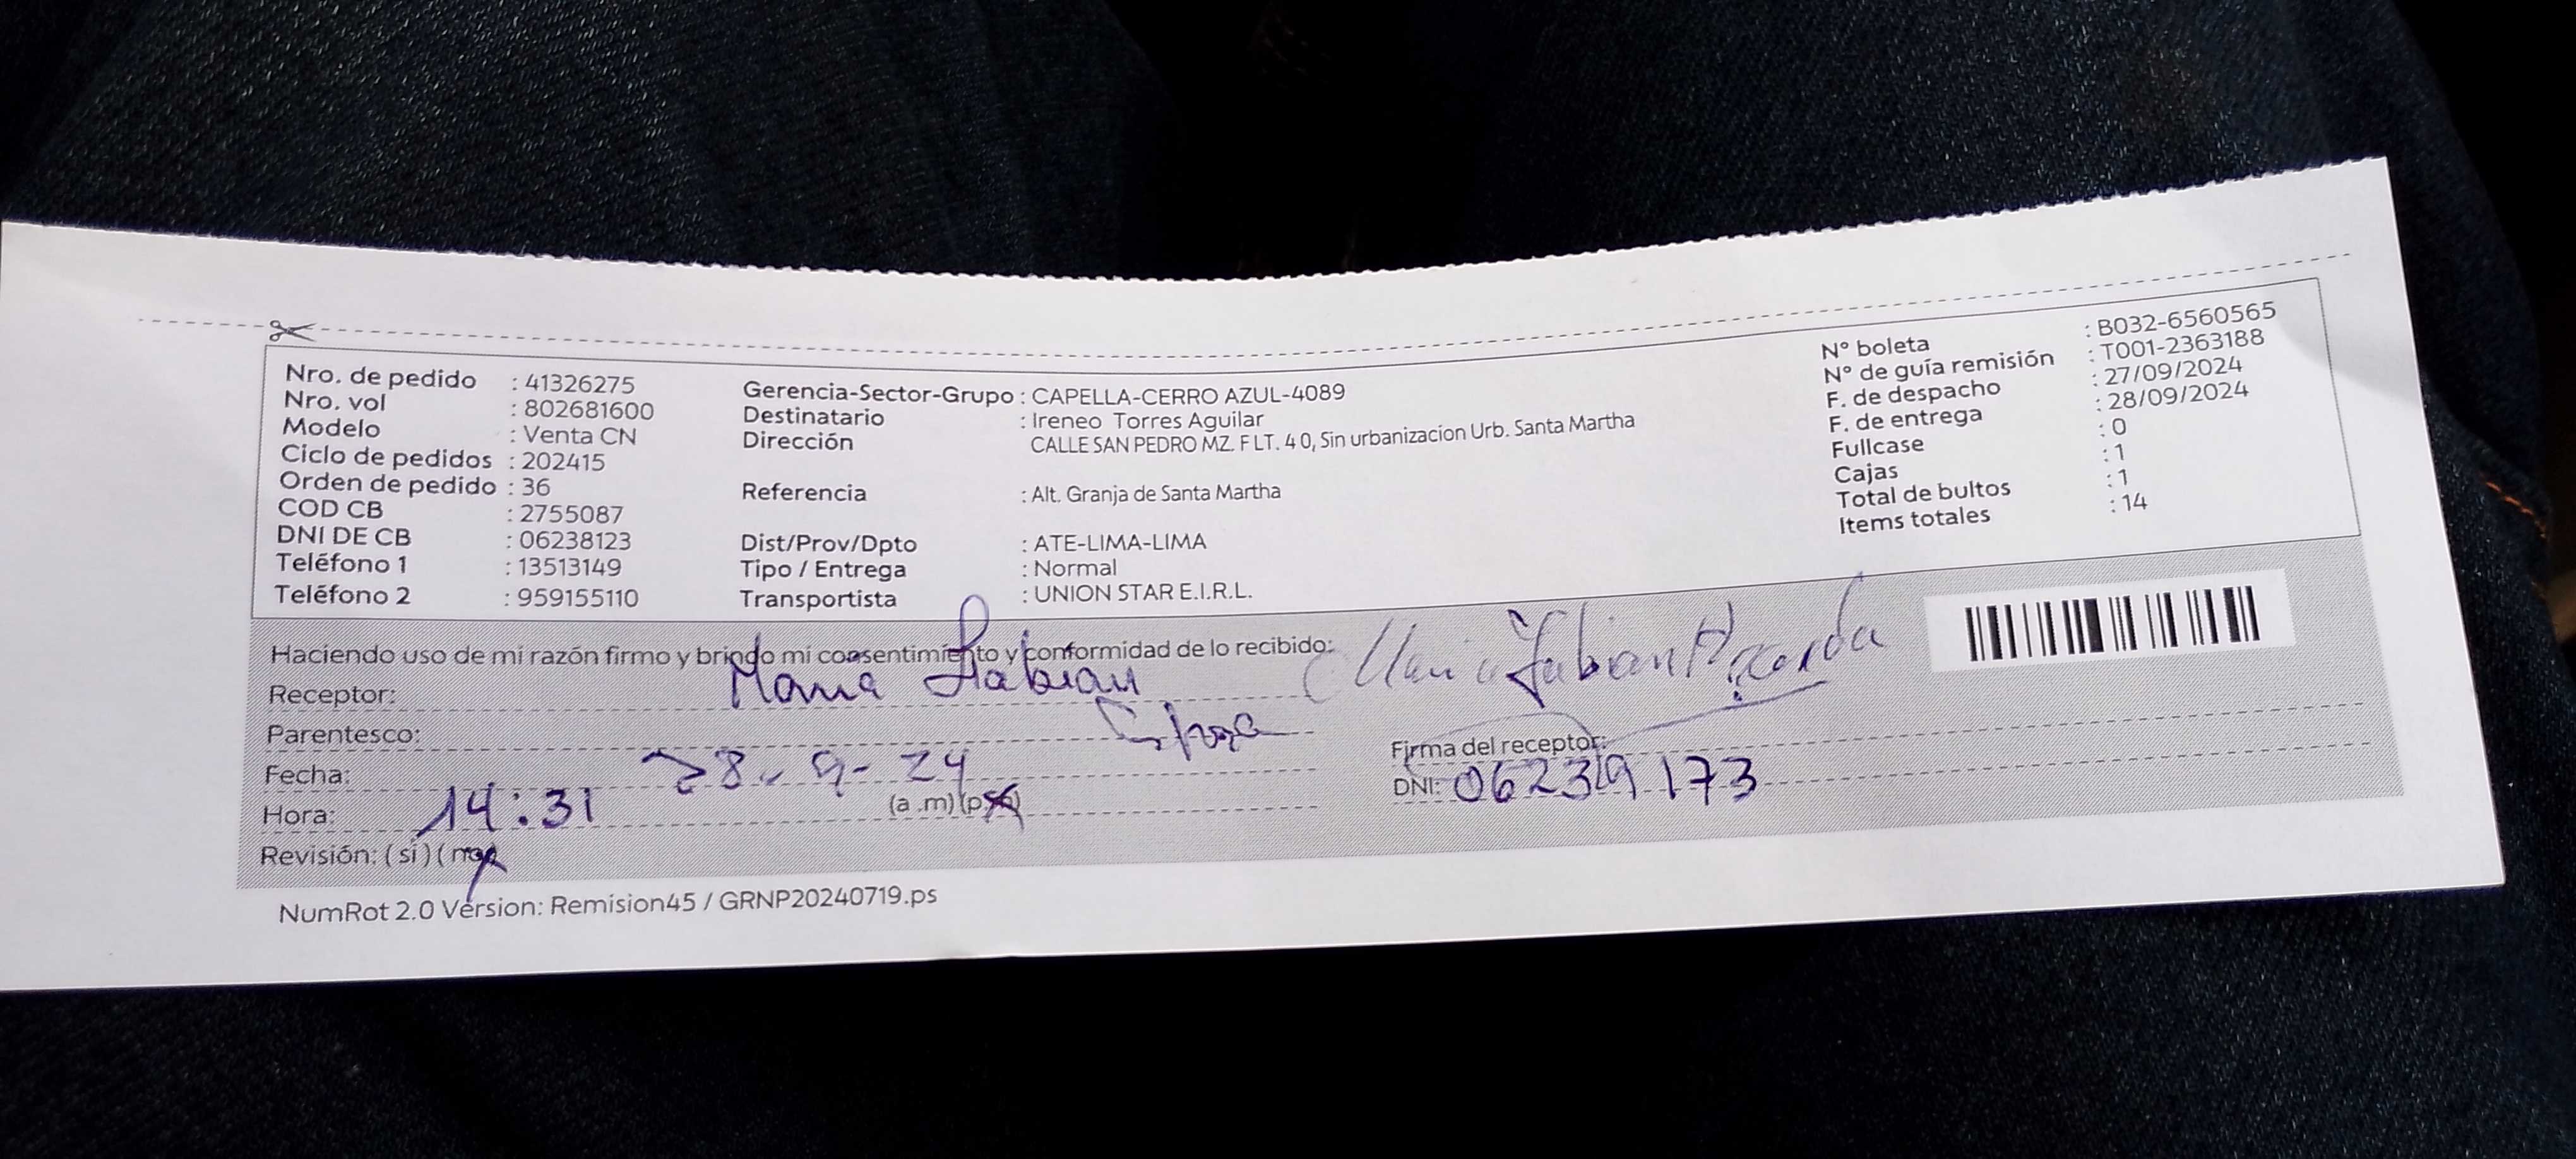 Nro. de pedido : 41326275
Nro. vol : 802681600
Modelo : Venta CN
Ciclo de pedidos : 202415
Orden de pedido : 36
COD CB : 2755087
DNI DE CB : 06238123
Teléfono 1 : 13513149
Teléfono 2 : 959155110
Gerencia-Sector-Grupo : CAPELLA-CERRO AZUL-4089
Destinatario : Ireneo Torres Aguilar
Dirección CALLE SAN PEDRO MZ. F LT. 4 0, Sin urbanizacion Urb. Santa Martha
Referencia : Alt. Granja de Santa Martha
Dist/Prov/Dpto : ATE-LIMA-LIMA
Tipo / Entrega : Normal
Transportista : UNION STAR E.I.R.L.
N° boleta : B032-6560565
N° de guía remisión : T001-2363188
F. de despacho : 27/09/2024
F. de entrega : 28/09/2024
Fullcase : 0
Cajas : 1
Total de bultos : 1
Items totales : 14
Haciendo uso de mi razón firmo y brindo mi consentimiento y conformidad de lo recibido:
Receptor: Maria Fabian
Parentesco: Esposa
Fecha: 28-9-24
Hora: 14:31 (a.m) (p.m)
Revisión: (si) (no)
Maria Fabian
Firma del receptor:
DNI: 06239173
NumRot 2.0 Version: Remision45 / GRNP20240719.ps